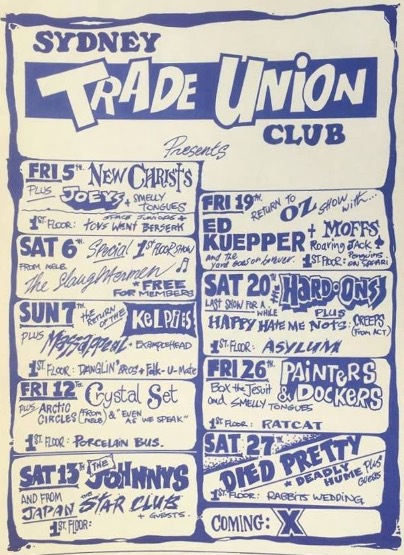 SYDNEY
TRADE UNION
CLUB
Presents
FRI 5TH NEW CHRISTS
PLUS JOEYS + SMELLY
TONGUES
1ST FLOOR: TOYS WENT BERSERK
SAT 6TH Special 1ST FLOOR SHOW
FROM MELB.
The Slaughtermen
* FREE
FOR MEMBERS
SUN 7TH THE RETURN OF THE KELPIES
PLUS Massappeal + EXAMPLEHEAD
1ST FLOOR: DANGLIN' BROS + Folk-U-Mate
FRI 12TH Crystal Set
PLUS ARCTIC
CIRCLES (FROM MELB) & "EVEN
AS WE SPEAK"
1ST FLOOR: PORCELAIN BUS.
SAT 13TH THE JOHNNYS
AND FROM
JAPAN STAR CLUB
+ GUESTS.
1ST FLOOR:
FRI 19TH RETURN TO OZ SHOW WITH...
ED
KUEPPER + MOFFS
Roaring JACK +
and the
yard goes on forever.
1ST FLOOR: Penguins
ON SAFARI
SAT 20TH THE HARD-ONS
LAST SHOW FOR A WHILE
PLUS
HAPPY HATE ME NOTS: CREEPS
(FROM ACT)
1ST FLOOR: ASYLUM
FRI 26TH PAINTERS
& DOCKERS
Box the Jesuit
and SMELLY TONGUES
1ST FLOOR: RATCAT
SAT 27TH
DIED PRETTY
* DEADLY
HUME PLUS
GUESTS
1ST FLOOR: RABBITS WEDDING
COMING: X